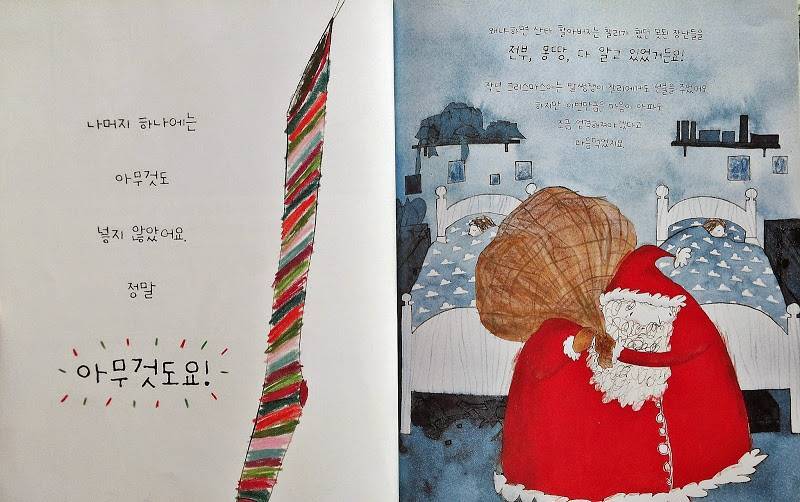 나머지 하나에는
아무것도
넣지 않았어요.
정말
아무것도요!
왜냐하면 산타 할아버지는 찰리가 했던 못된 장난들을
전부, 몽땅, 다 알고 있었거든요!
작년 크리스마스에는 말썽쟁이 찰리에게도 선물을 주었어요.
하지만 이번만큼은 마음이 아파도
조금 엄격해져야겠다고
마음먹었지요.